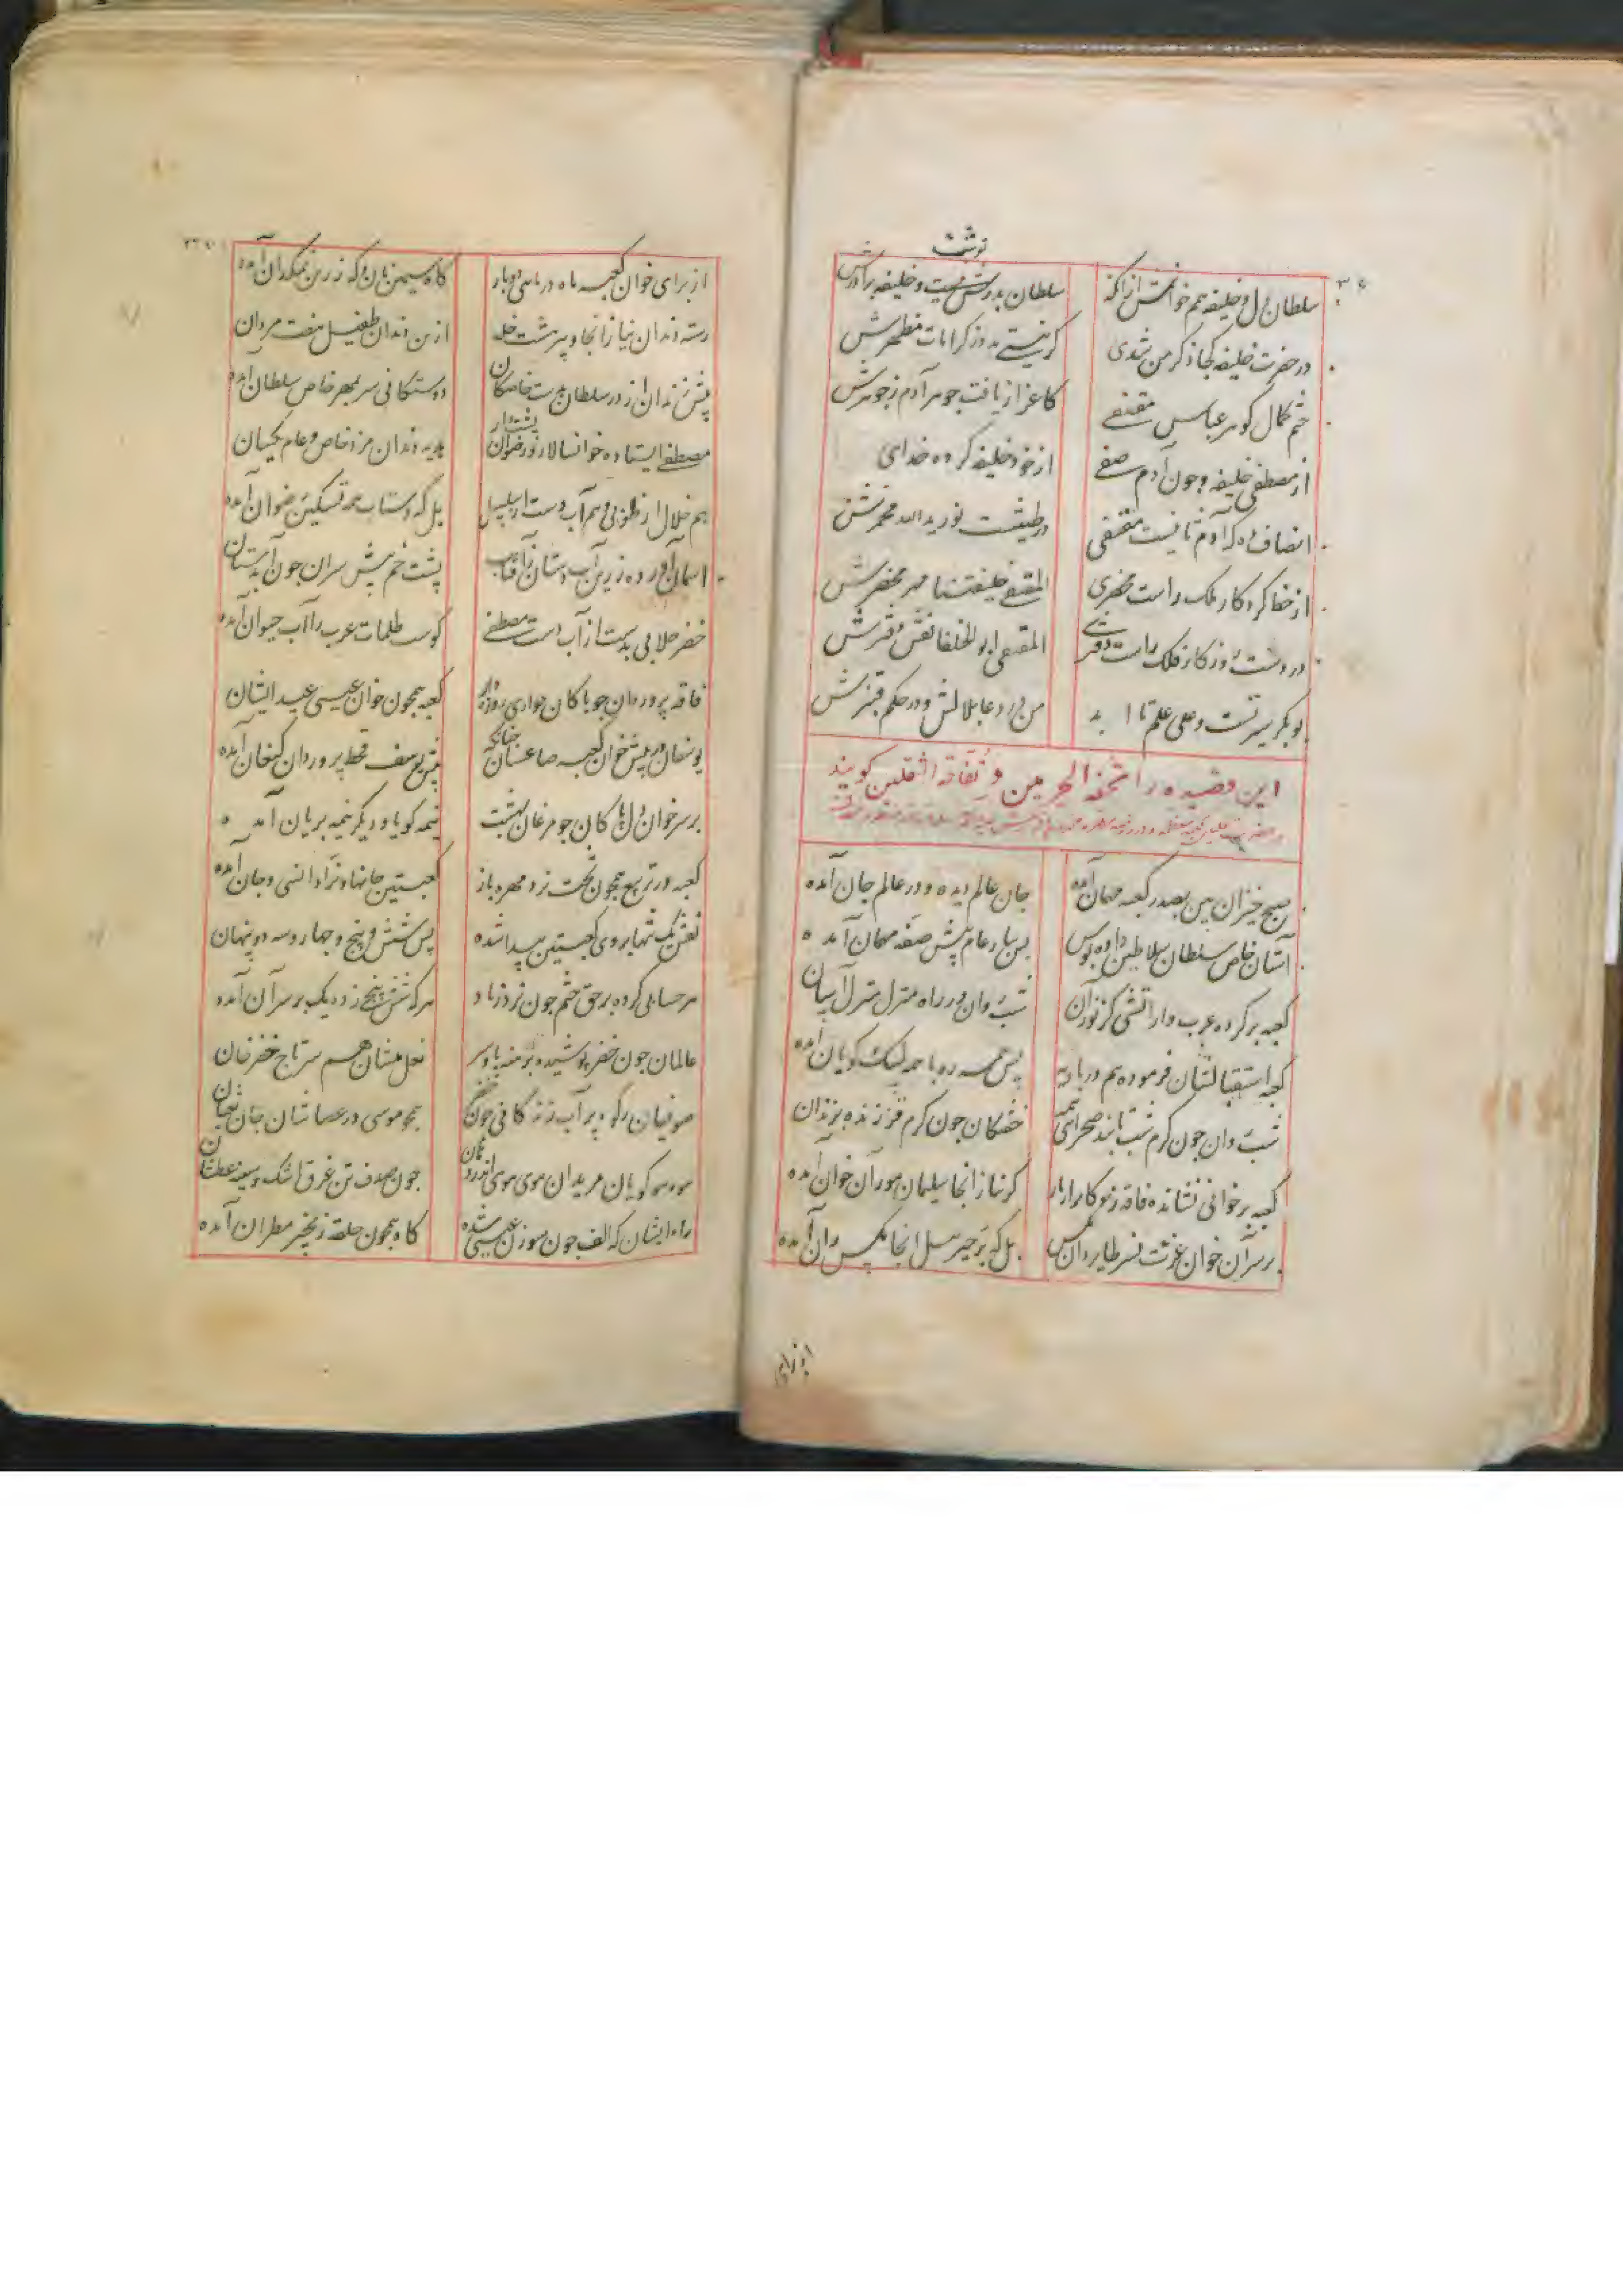 نوشت
سلطان دل و خلیفه هم خوانمش ازانکه سلطان پدر نبشت و خلیفه برادرش
در حضرت خلیفه کجا ذکر من شدی کر نیستی مدد ز کرامات مظهرش
ختم کمال کوهر عباس مقتفی کاعزاز یافت جوهر آدم ز جوهرش
از مصطفی خلیفه و چون آدم صفی از خود خلیفه کرده خدای
انصاف ده که آدم ثانیست مقتفی در طینتست نور ید الله مخمرش
از خط کردکار فلک راست محضری المقتفی خلیفتنا مهر محضرش
در دست روزکار فلک راست دفتری المقتفی ابو الخلفا نقش دفترش
بوبکر سیرتست و علی علم تا ابد من در دعا بلالش و در حکم قنبرش
این قصیده را تحفة الحرمین و تفاحة الثقلین کویند
صبح خیزان بین بصدر کعبه مهمان آمده جان عالم دیده و در عالم جان آمده
آستان خاص سلطان سلاطین داده بوس پس ببار عام پیش صفه مهمان آمده
کعبه بر کرده عرب وار آتشی کز نور آن شب روان در راه منزل منزل آسان
کعبه استقبالشان فرموده هم در بادیه پس همه ره با همه لبیک کویان آمده
شب روان چون کرم شب تابند صحرایی همه خفتکان چون کرم قز زنده بزندان
کعبه برخوانی نشانده فاقه زدکانرا بناز کز نیاز آنجا سلیمان مور آن خوان آمده
بر سر آن خوان عزت نسر طایر دان مکس بل که پر جبرئیل آنجا مکس ران آمده
از برای خوان کعبه ماه در ماهی دوبار کاه سیمین نان و که زرین نمکدان آمده
رسته دندان نیاز آنجا و پیر هشت خلد از بن دندان طفیل هفت مردان
پیش دندان از در سلطان بدست خاصکان دوستکانی سر بمهر خاص سلطان آمده
مصطفی ایستاده خوانسالار و رضوان بدیه دندان مزد خاص و عام یکسان
هم خلال از طوبی و هم آب دست از سلسبیل بل که دستاب همه تسکین رضوان آمده
آسمان آورده زرین آب دستان ز آفتاب پشت خم پیش سران چون آب دستان
خضر جلابی بدست از آب دست مصطفی کوست ظلمات عرب را آب حیوان آمده
فاقه پروردان چو پاکان حواری روزه دار کعبه همچون خوان عیسی عید ایشان
یوسفان در پیش خوان کعبه صاع عسان چنانکه پیش یوسف قحط پروردان کنعان آمده
بر سر خوان دل پاکان چو مرغان بهشت نیمه کویا و دیکر نیمه بریان آمده
کعبه در تربیع همچون تخت نرد مهره باز کعبتین جانها و نراد انسی و جان آمده
نقش یک تنها بروی کعبتین پیدا شده پس شش و پنج و چهار و سه دو پنهان
هر حسابی کرده بر حق ختم چون نرد زیاد هر که شش پنجی زده یک بر سر آن آمده
عالمان چون خضر پوشیده برهنه پا و سر نعل پیشان هم سر تاج خضر خان
صوفیان رکوه پر آب زندکانی چون خضر همچو موسی در عصاشان جان ثعبان
مو بمو کویان مریدان موی موی اندر چون صدف تن غرق اشک و سینه عطشان
راه ایشان که الف چون سوزن عیسی شده کاه همچون حلقه زنجیر مطران آمده
از برای